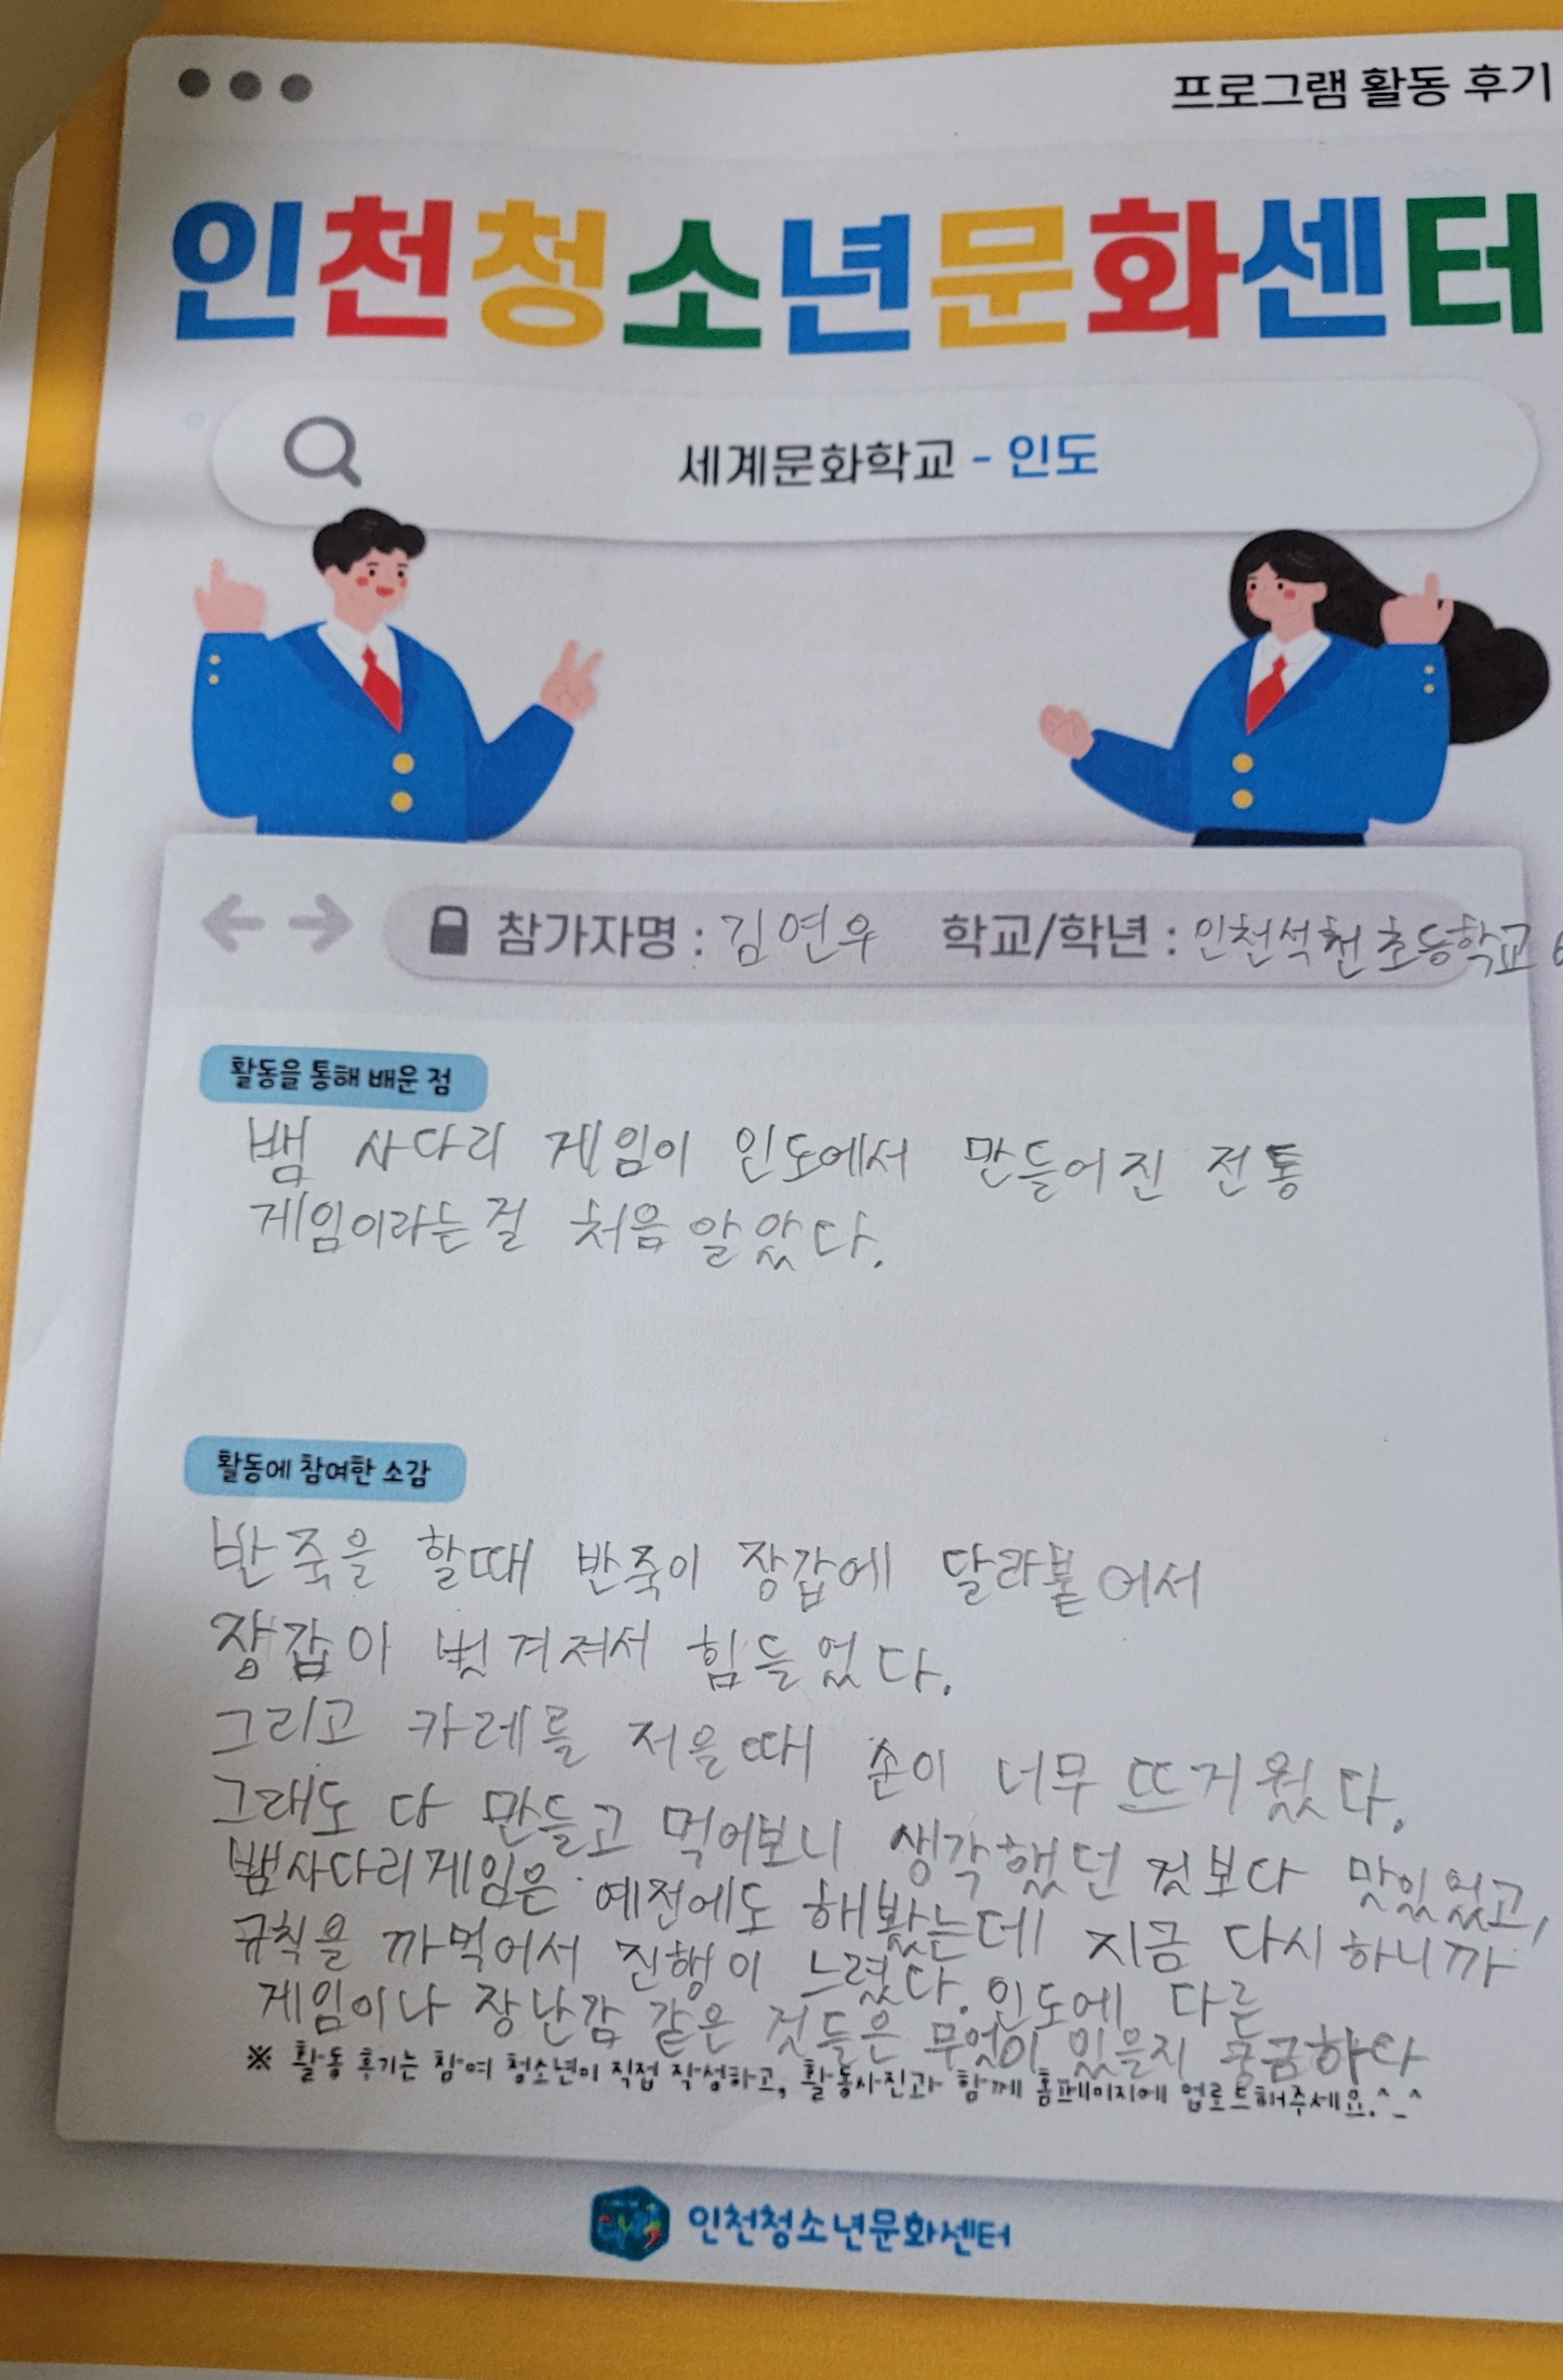 프로그램 활동 후기
인천청소년문화센터
세계문화학교 - 인도
참가자명 : 김연우 학교/학년 : 인천석천초등학교 6
활동을 통해 배운 점
뱀 사다리 게임이 인도에서 만들어진 전통
게임이라는걸 처음 알았다.
활동에 참여한 소감
반죽을 할때 반죽이 장갑에 달라붙어서
장갑이 벗겨져서 힘들었다.
그리고 카레를 저을때 손이 너무 뜨거웠다.
그래도 다 만들고 먹어보니 생각했던 것보다 맛있었고,
뱀사다리게임은 예전에도 해봤는데 지금 다시하니까
규칙을 까먹어서 진행이 느렸다. 인도에 다른
게임이나 장난감 같은 것들은 무엇이 있을지 궁금하다
※ 활동 후기는 참여 청소년이 직접 작성하고, 활동사진과 함께 홈페이지에 업로드해주세요.^_^
인천청소년문화센터